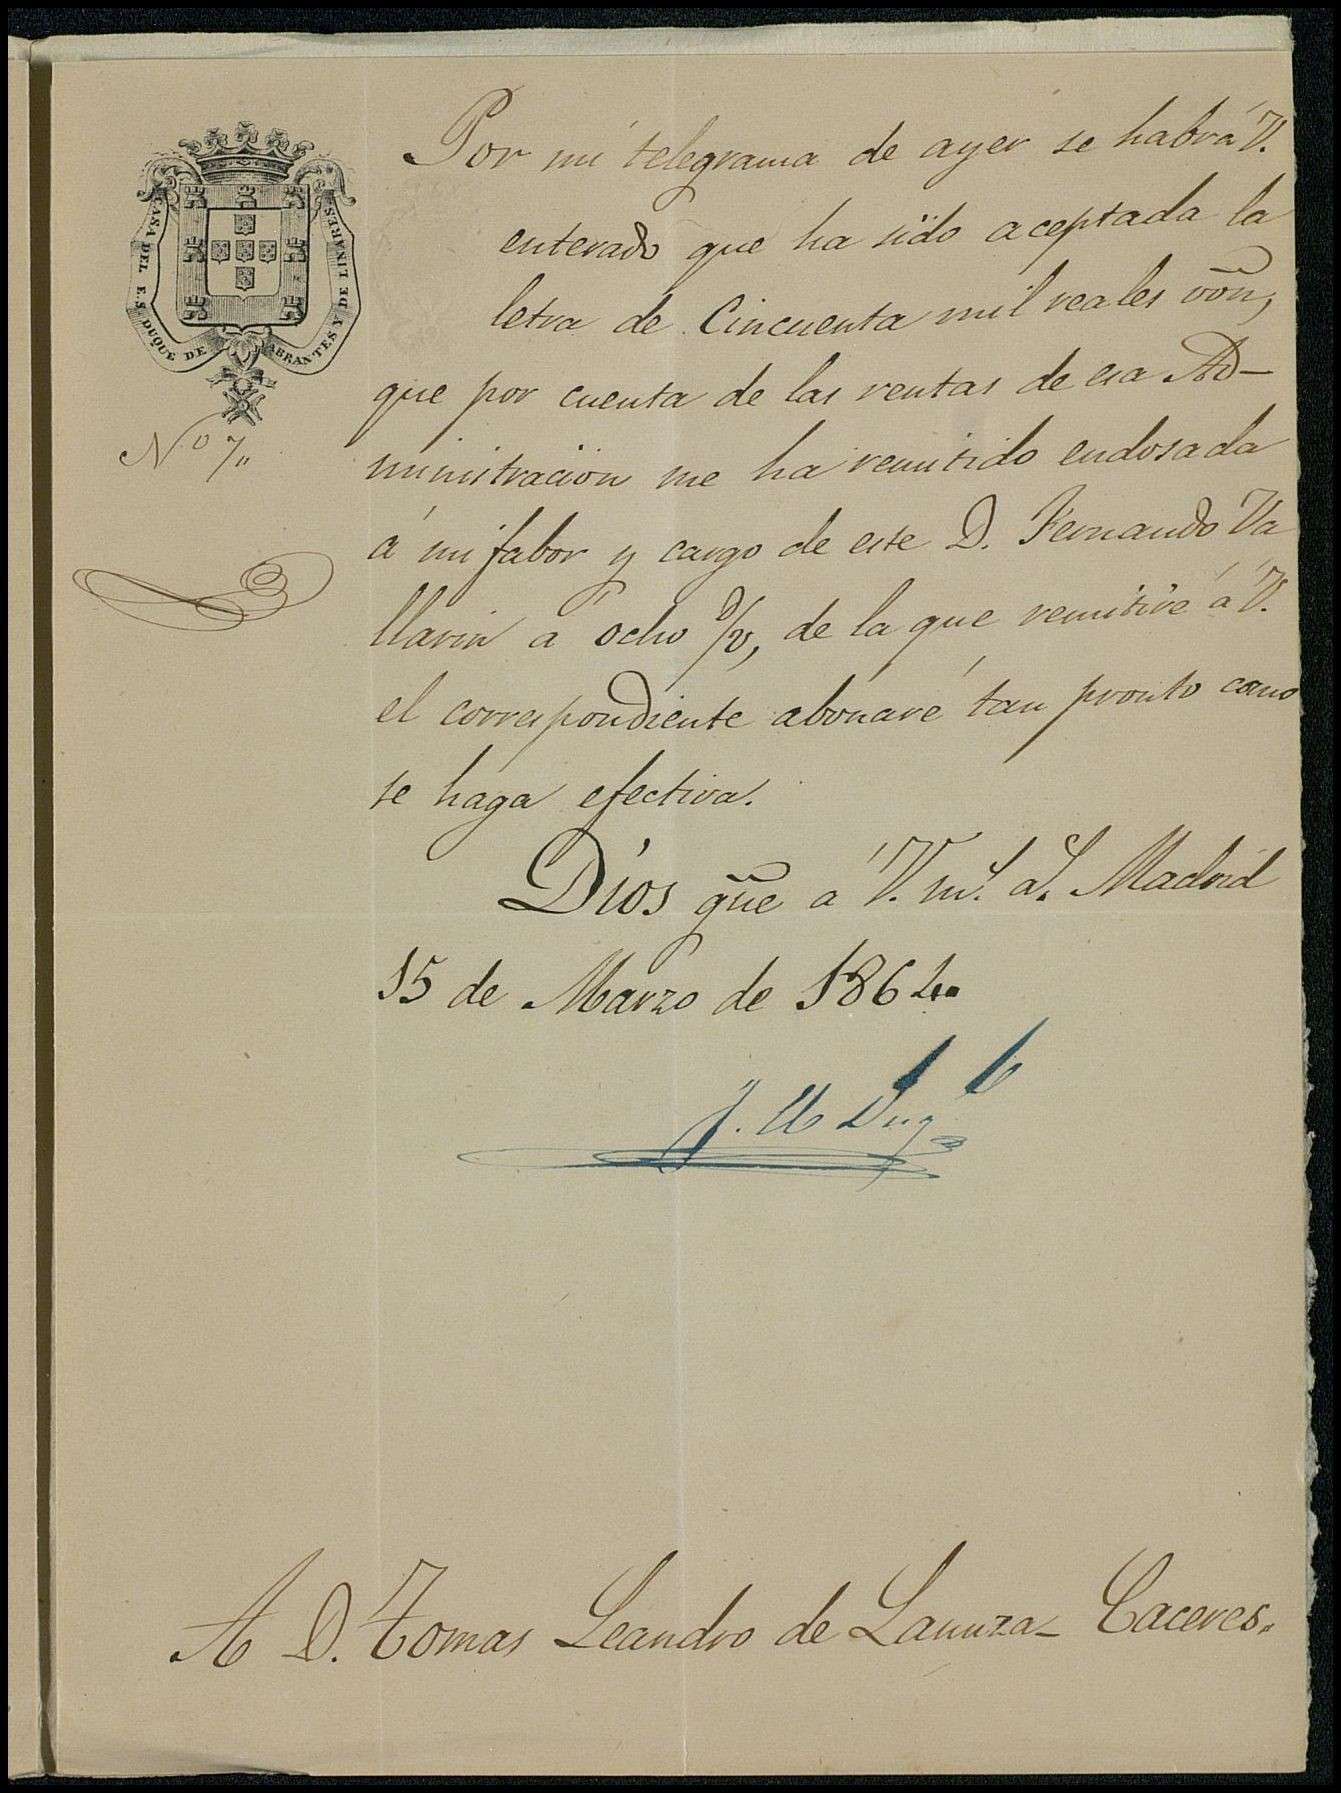 CASA DEL E.S. DUQUE DE ABRANTES Y DE LINARES
Nº 7,,
Por mi telegrama de ayer se habrá V.
enterado que ha sido aceptada la
letra de Cincuenta mil reales võn,
que por cuenta de las rentas de esa Ad-
ministracion me ha remitido endosada
á mi fabor y cargo de este D. Fernando Va
llarin á ocho d/v, de la que remitiré á V.
el correspondiente abonaré tan pronto como
se haga efectiva.
Dios gũe á V. m.s a.s Madrid
15 de Marzo de 1864.
A D. Tomas Leandro de Lanuza_ Caceres.